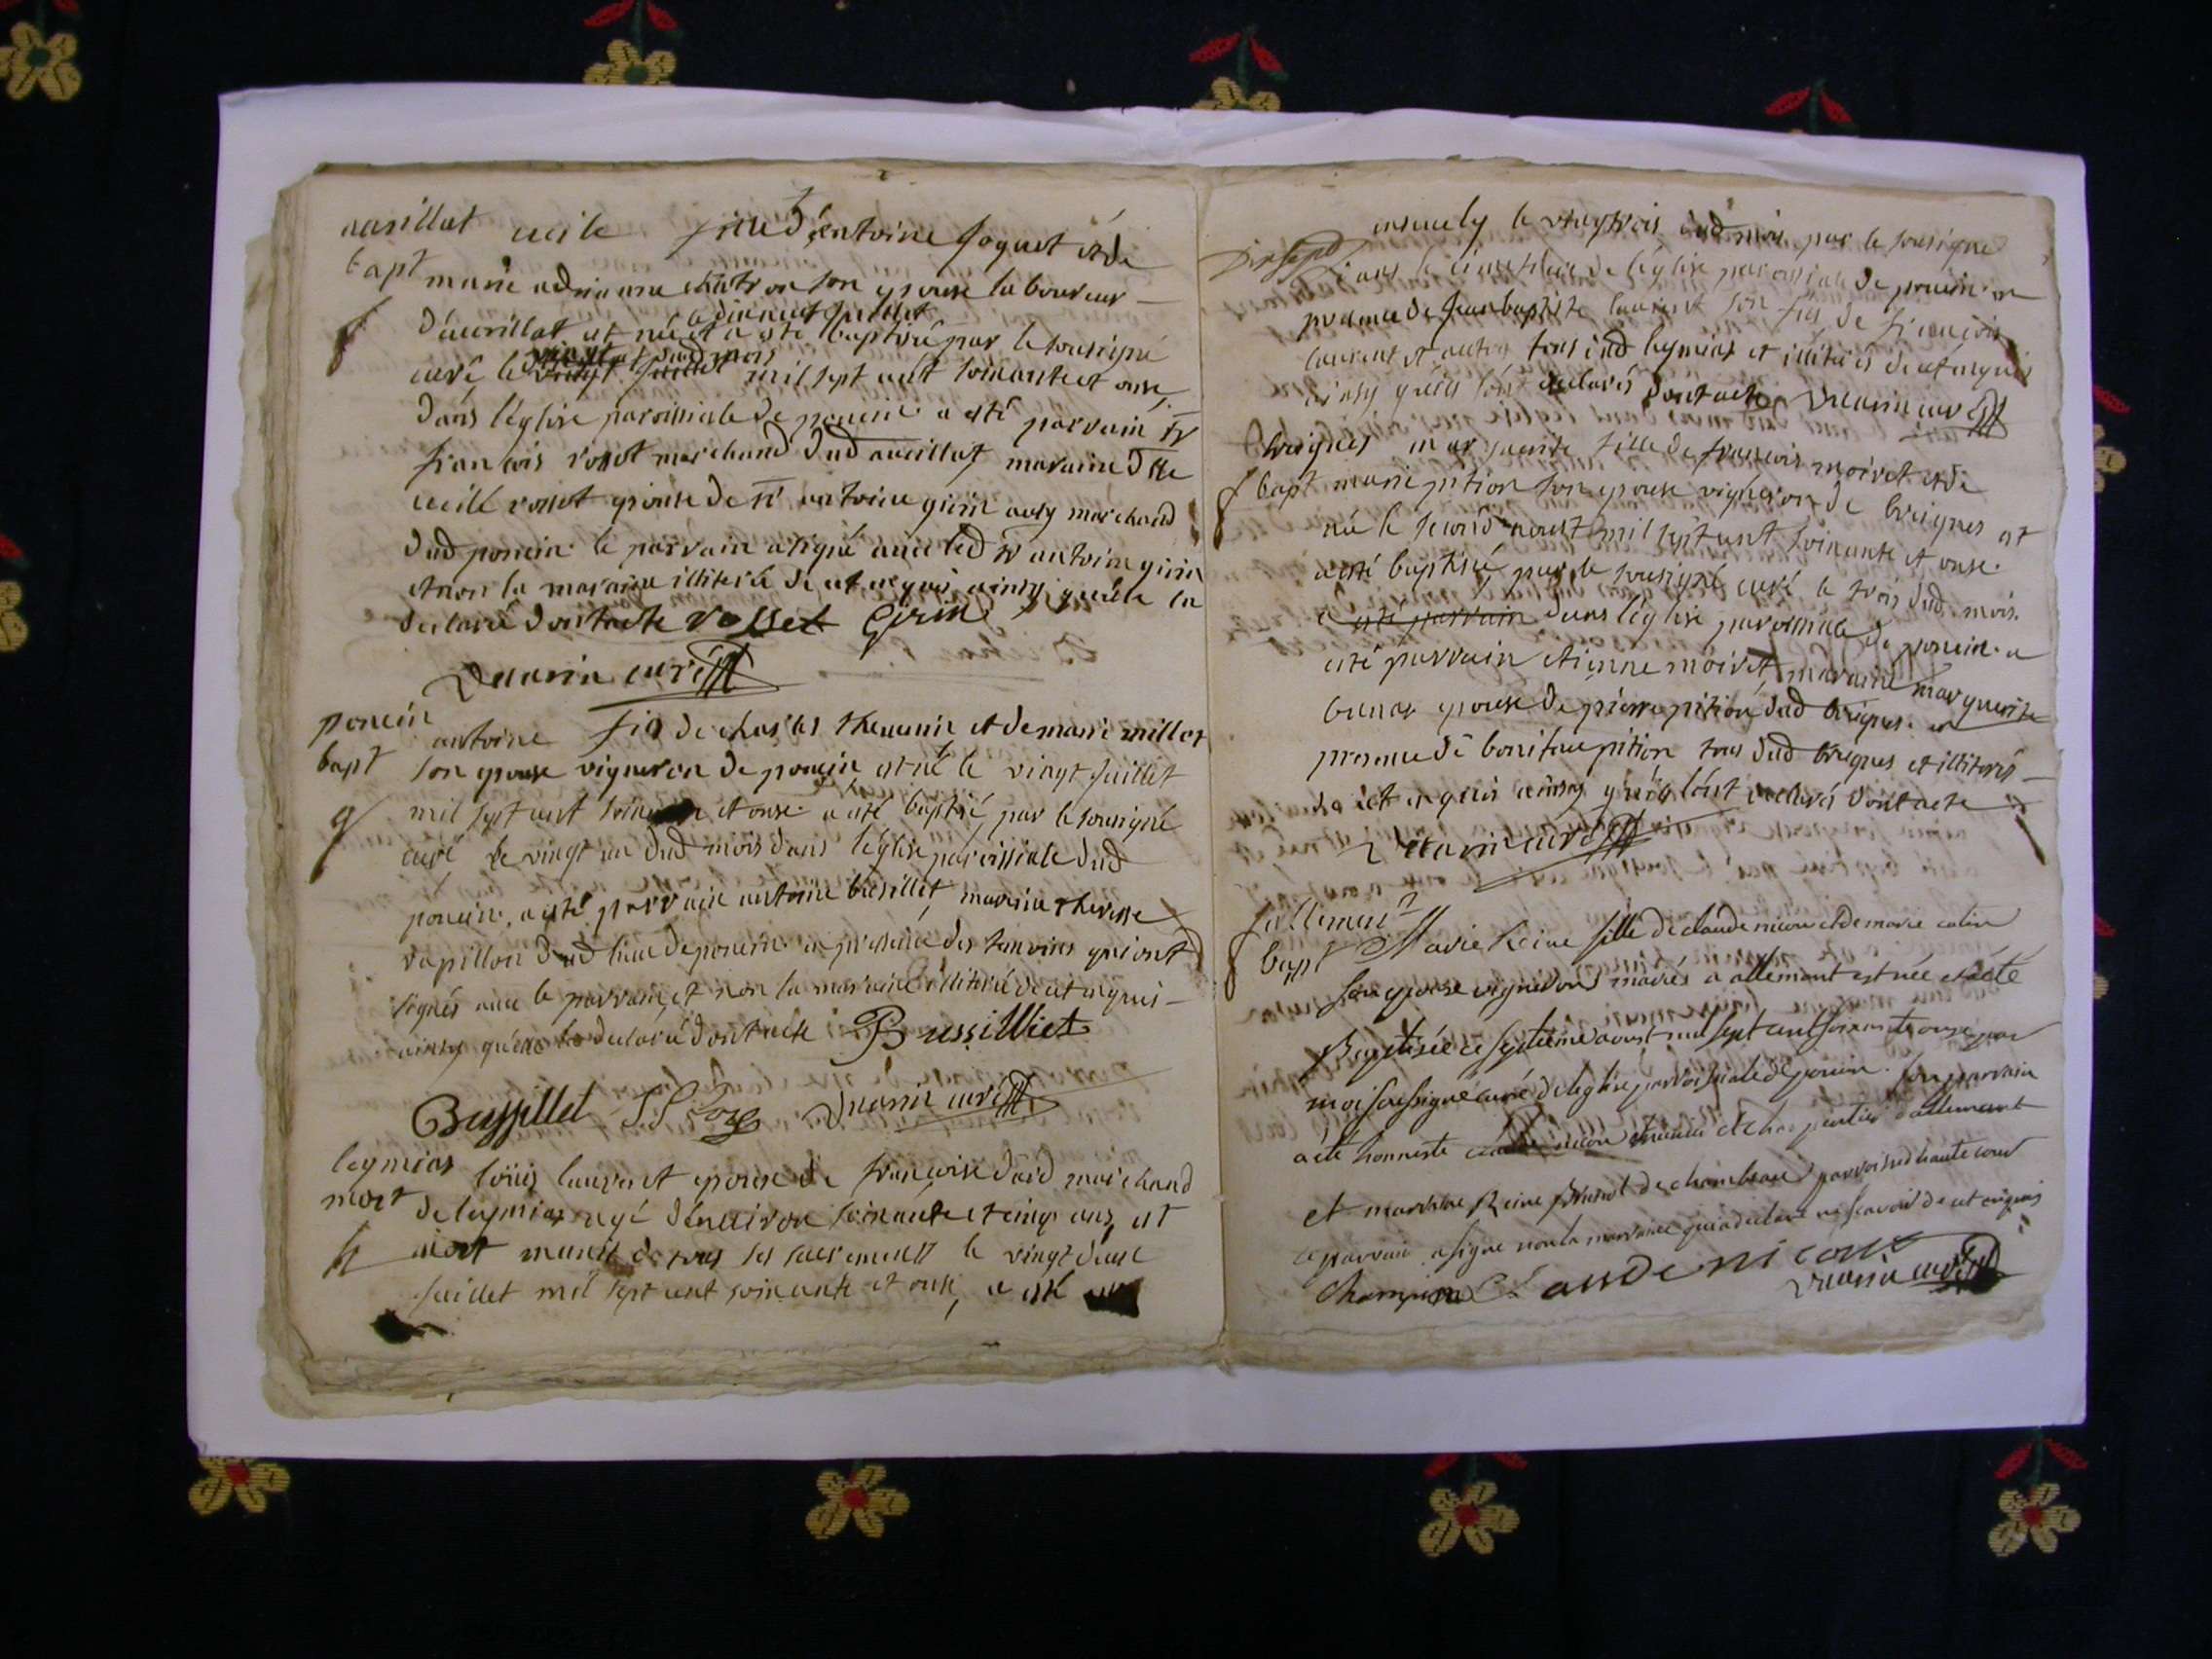 avrillat cecile fille d'antoine joguet et de
bapt marie adrianne chatron son epouse laboureur
d'avrillat est née et a été baptisé par le sousigné
le dixneuf juillet
curé le vingt juillet mil sept cent soixante et onze,
dans l'eglise paroissiale de poncin a esté parrain Sr
francois rosset marchand dud avrillat maraine dlle
cecille rosset epouse de Sr antoine girin ausy marchand
dud poncin le parrain a signé avec led Sr antoine girin
et non la maraine illiterée de cet enquis ainsy quelle la
declaré dont acte Rosset Girin
curé
poncin antoine fils de charles thevenin et de marie millet
bapt son epouse vigneron de poncin est né le vingt juillet
mil sept cent et onze a été baptisé par le sousigné
curé le vingt un dud mois dans l'eglise paroissiale dud
poncin, a esté parrain antoine bussillet, maraine therese
papillon dud lieu de poncin en presence des temoins qui ont
signés avec le parrain, et non la maraine illiterée de cet enquis
ainsy quelle la declaré dont acte Bussilliet
Bussillet curé
leymiat loüis laurent epoux de francoise marchand
mort de leymiat agé d'environ soixante et cinq ans, est
mort munit de tous ses sacrements le vingt deux
juillet mil sept cent soixante et onze, a esté
enseuely le vingt trois dud mois par le sousigné
dans le cimetiere de l'eglise paroissiale de poncin en
presence de jean baptiste laurent son fils de francois
laurent et autres tous dud leymiat et illiterés de cet enquis
ainsy qu'ils l'ont declarés dont acte curé
breignes marguerite fille de francois moiret et de
bapt marie pition son epouse vigneron de breignes est
née le second aoust mil sept cent soixante et onze
a esté baptisée par le sousigné curé le trois dud mois
a esté parrain dans l'eglise paroissiale de poncin a
esté parrain etienne moiret, maraine marguerite
epouse de pierre pition dud breignes en
presence de boniface pition tous dud breignes et illiterés
de cet enquis ainsy qu'ils l'ont declarés dont acte
curé
l'allement
bapt Marie Reine fille de claude nicou et de marie colin
son epouse vignerons mariés a allement est née et a été
Baptisée ce septieme aoust mil sept cent soixante onze par
moi soussigné curé de l'eglise parroissiale de poncin. son parrain
a été honneste claude nicou charpentier d'allement
et marraine Reine de chambeau parroisse d'hautecour
le parrain a signé non la marraine qui a declaré ne scavoir de cet enquis
Champion Claude nicoux
curé